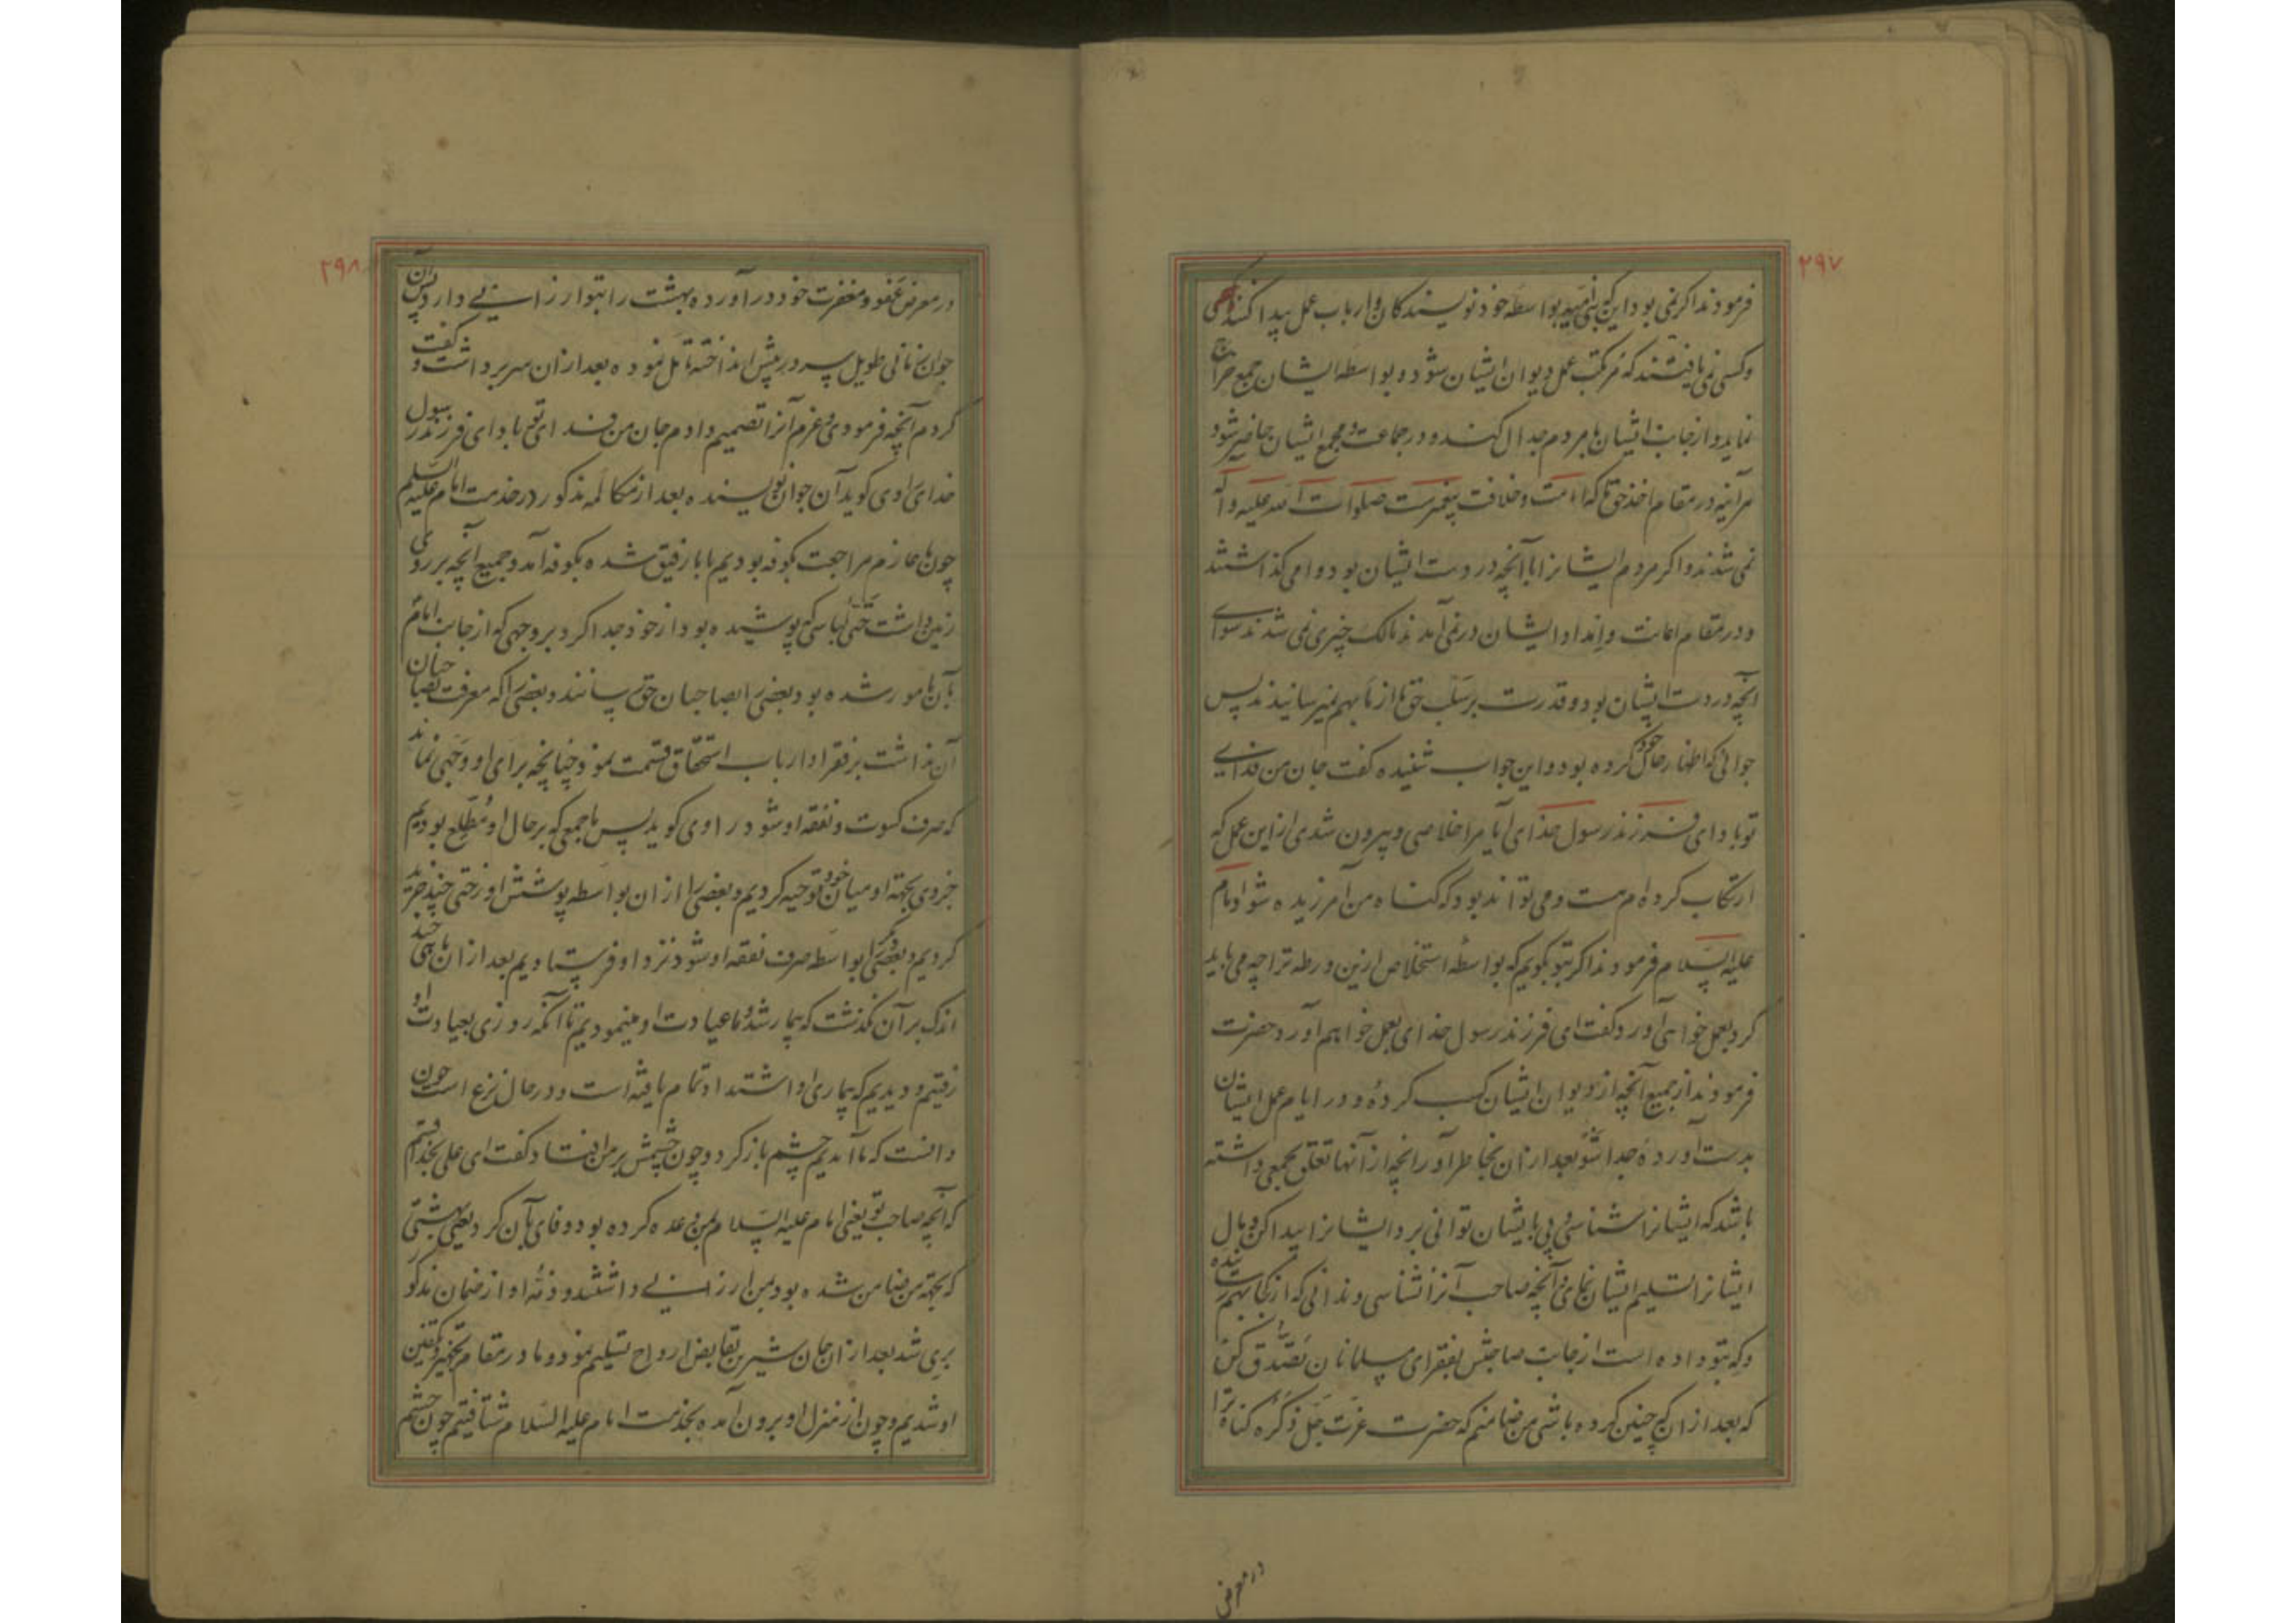 ۲۹۷
فرمودند اکر نمی بود این که بنی امیه بواسطه خود نویسندکان و ارباب عمل پیدا کنند
و کسی نمی یافتند که مرتکب عمل دیوان ایشان شود و بواسطه ایشان جمع خراج
نماید و از جانب ایشان با مردم جدال کند و در جماعت و مجمع ایشان حاضر شود
هرآینه در مقام اخذ حق ما که امامت و خلافت پیغمبرست صلوات الله علیه و آله
نمی شدند و اکر مردم ایشانرا با آنچه در دست ایشان بود وامی کذاشتند
و در مقام اعانت و امداد ایشان درنمی آمدند مالک چیزی نمی شدند سوای
آنچه در دست ایشان بود و قدرت بر سلب حق ما از ما بهم نمیرسانیدند پس
جوانی که اظهار حال خود کرده بود و این جواب شنیده کفت جان من فدای
تو باد ای فرزند رسول خدای آیا مرا خلاصی و بیرون شدی از این عمل که
ارتکاب کرده ام هست و می تواند بود که کناه من آمرزیده شود امام
علیه السلام فرمودند اکر بتو بکویم که بواسطه استخلاص ازین ورطه ترا چه می باید
کرد بعمل خواهی آورد کفت ای فرزند رسول خدای بعمل خواهم آورد حضرت
فرمودند از جمیع آنچه از دیوان ایشان کسب کرده و در ایام عمل ایشان
بدست آورده جدا شو بعد ازان بخاطر آور آنچه از آنها تعلق بجمعی داشته
باشد که ایشانرا شناسی و پی بایشان توانی برد ایشانرا پیدا کن و مال
ایشانرا تسلیم ایشان نمای و آنچه صاحب آنرا نشناسی و ندانی که از کجا بهم رسیده
و که بتو داده است از جانب صاحبش بفقرای مسلمانان تصدق کن
که بعد ازان که چنین کرده باشی من ضامنم که حضرت عزت جل ذکره کناه ترا
در معرض
۲۹۸
در معرض عفو و مغفرت خود درآورده بهشت را بتو ارزانی دارد پس آن
جوان زمانی طویل سر در پیش انداخته تامل نموده بعد ازان سر برداشت و کفت
کردم آنچه فرمودی و عزم آنرا تصمیم دادم جان من فدای تو باد ای فرزند رسول
خدای راوی کوید آن جوان نویسنده بعد از مکالمه مذکور در خدمت امام علیه السلم
چون ما عازم مراجعت بکوفه بودیم با ما رفیق شده بکوفه آمد و جمیع آنچه بر روی
زمین داشت حتی لباسی که پوشیده بود از خود جدا کرد بر وجهی که از جانب امام
بآن مامور شده بود بعضی را بصاحبان حق رسانند و بعضی را که معرفت بصاحبان
آن نداشت بر فقرا و ارباب استحقاق قسمت نمود چنانچه برای او وجهی نماند
که صرف کسوت و نفقه او شود راوی کوید پس ما جمعی که بر حال او مطلع بودیم
جزوی بجهة او میان خود توجیه کردیم و بعضی را ازان بواسطه پوشش او رختی چند خرید
کردیم و بعضی دیکر را بواسطه صرف نفقه او شود نزد او فرستادیم بعد ازان ماهی چند
اندک بر آن نکذشت که بیمار شد و ما عیادت او مینمودیم تا آنکه روزی بعیادت او
رفتیم و دیدیم که بیماری او اشتداد تمام یافته است و در حال نزع است چون
دانست که ما آمدیم چشم باز کرد و چون چشمش بر من افتاد کفت ای علی بخدا قسم
که آنچه صاحب تو یعنی امام علیه السلام بمن وعده کرده بود وفای بآن کرد یعنی بهشتی
که بجهة من ضامن شده بود بمن ارزانی داشتند و ذمه او از ضمان مذکور
بری شد بعد ازان جان شیرین بقابض ارواح تسلیم نمود و ما در مقام تجهیز و تکفین
او شدیم و چون از منزل او بیرون آمده بخدمت امام علیه السلام شتافتیم چون چشم